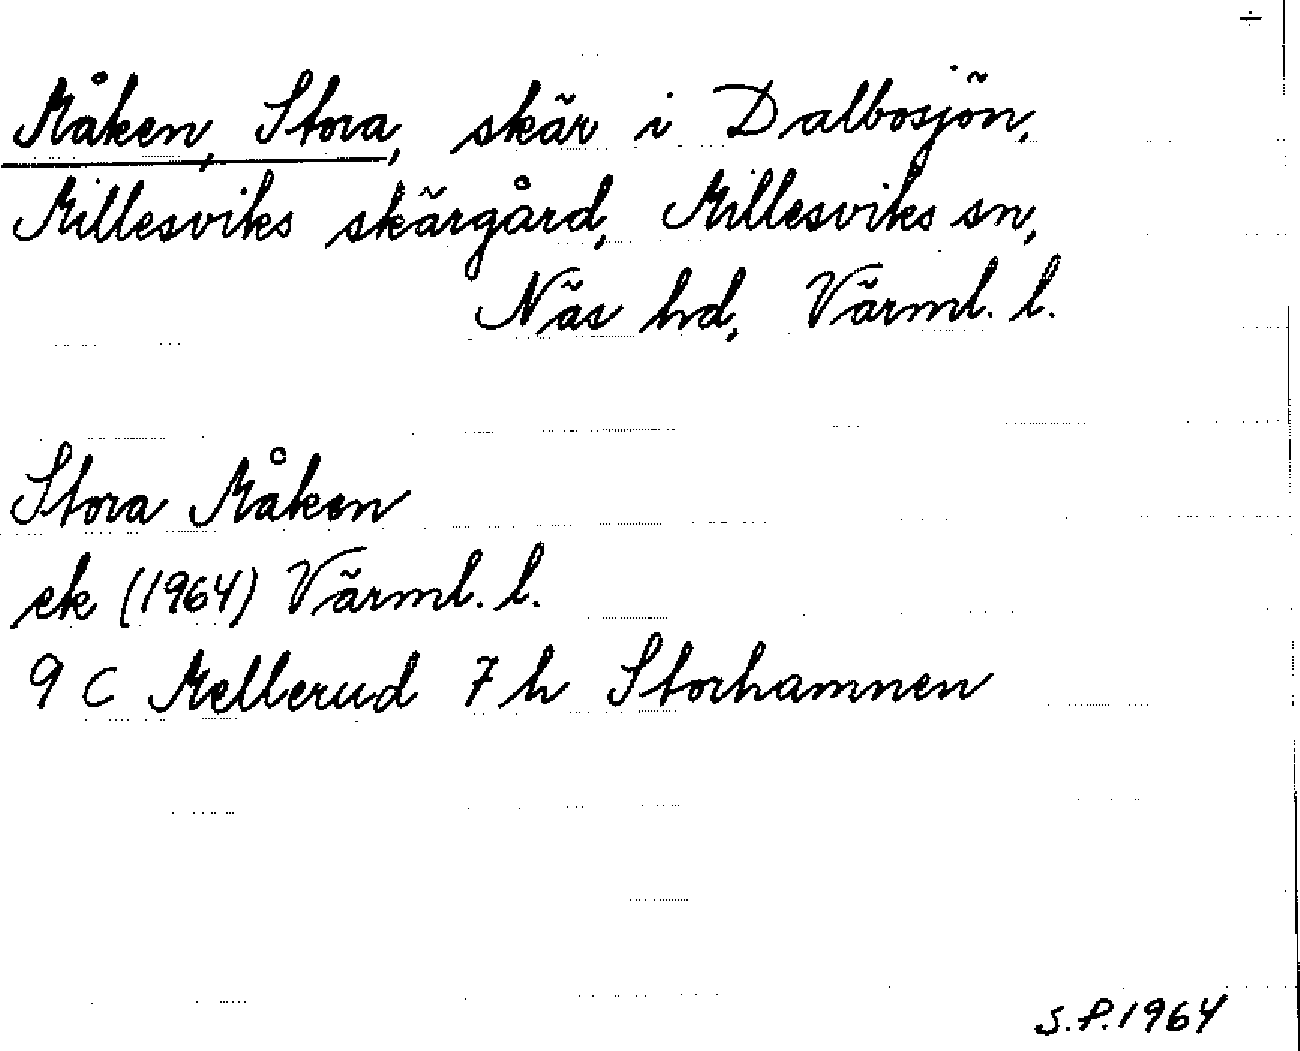 ÷
Måken, Stora, skär i Dalbosjön,
Millesviks skärgård, Millesviks sn,
Näs hd, Värml. l.
Stora Måken
ek (1964) Värml. l.
9 C Mellerud 7 h Storhamnen
S.P. 1964